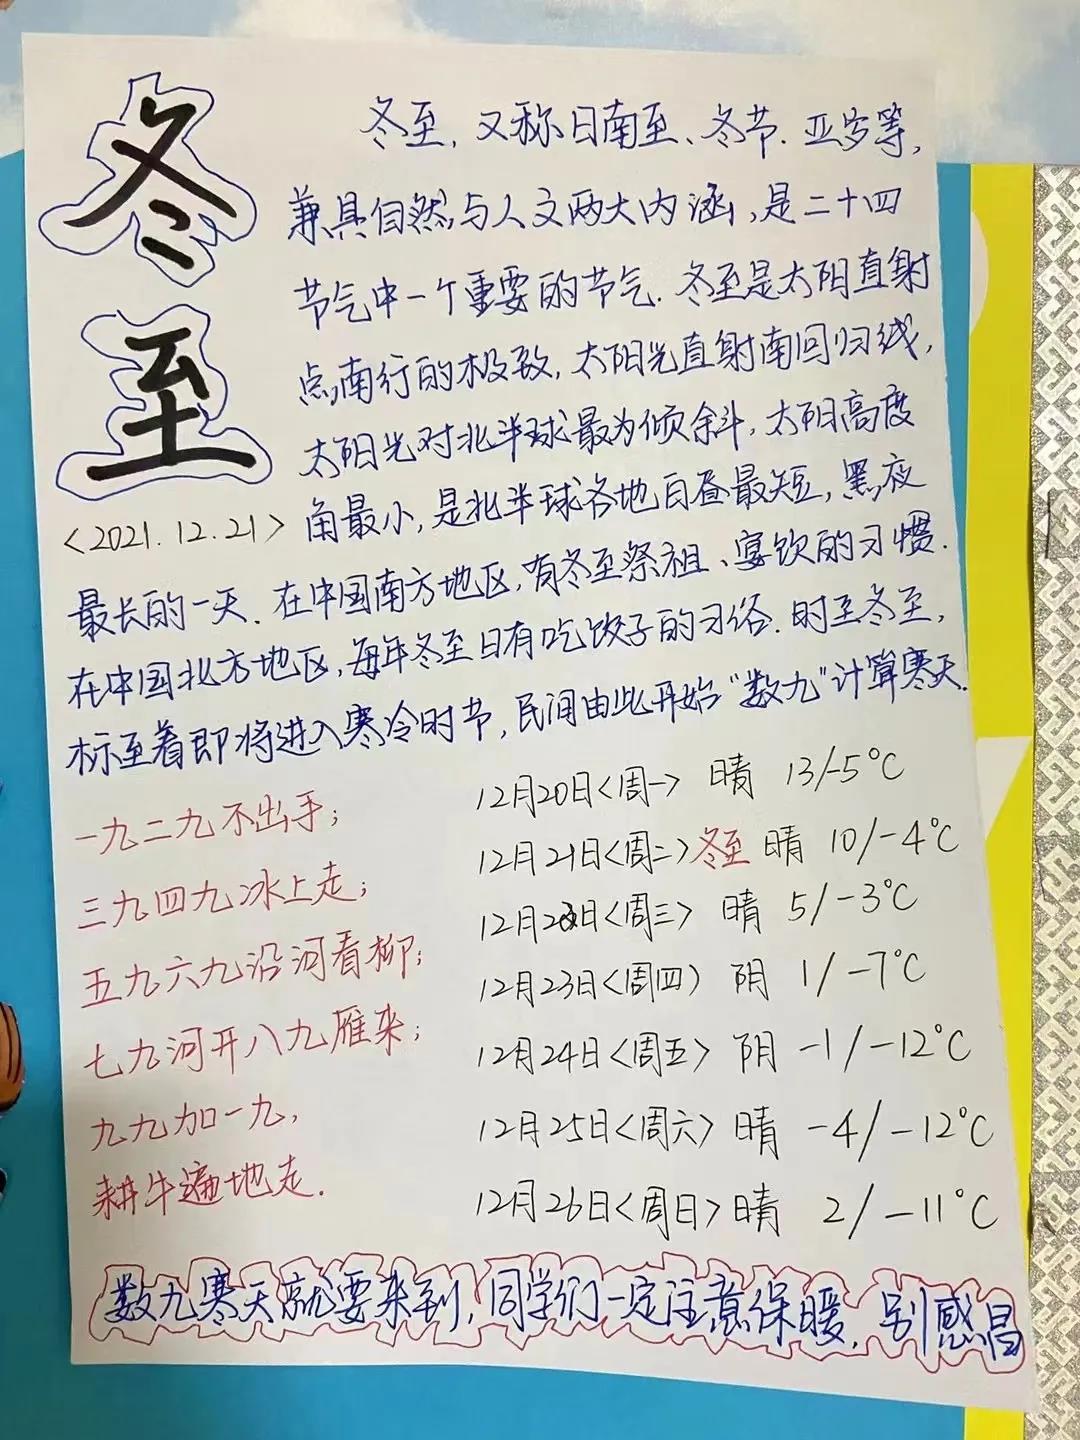 冬至
<2021.12.21>
冬至，又称日南至、冬节．亚岁等，
兼具自然与人文两大内涵，是二十四
节气中一个重要的节气．冬至是太阳直射
点南行的极致，太阳光直射南回归线，
太阳光对北半球最为倾余斗，太阳高度
角最小，是北半球各地白昼最短，黑夜
最长的一天．在中国南方地区，有冬至祭祖、宴饮的习惯．
在中国北方地区，每年冬至日有吃饺子的习俗．时至冬至，
标至着即将进入寒冷时节，民间由此开始“数九”计算寒天．
一九二九不出手；
三九四九冰上走；
五九六九沿河看柳；
七九河开八九雁来；
九九加一九，
耕牛遍地走．
12月20日<周一> 晴 13/-5°C
12月21日<周二>冬至 晴 10/-4°C
12月22日<周三> 晴 5/-3°C
12月23日<周四) 阴 1/-7°C
12月24日<周五> 阴 -1/-12°C
12月25日<周六> 晴 -4/-12°C
12月26日<周日> 晴 2/-11°C
数九寒天就要来到，同学们一定注意保暖．别感冒